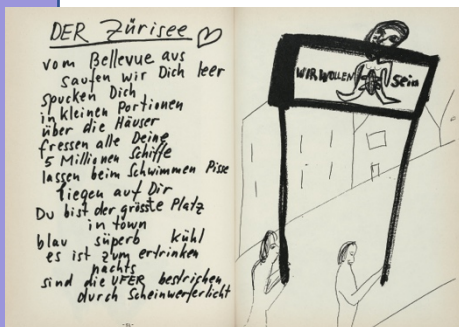 DER Zürisee
vom Bellevue aus
saufen wir Dich leer
spucken Dich
in kleinen Portionen
über die Häuser
fressen alle Deine
5 Millionen Schiffe
lassen beim Schwimmen Pisse
liegen auf Dir
Du bist der grösste Platz
in town
blau süperb kühl
es ist zum ertrinken
nachts
sind die UFER bestrichen
durch Scheinwerferlicht
WIR WOLLEN SEIN